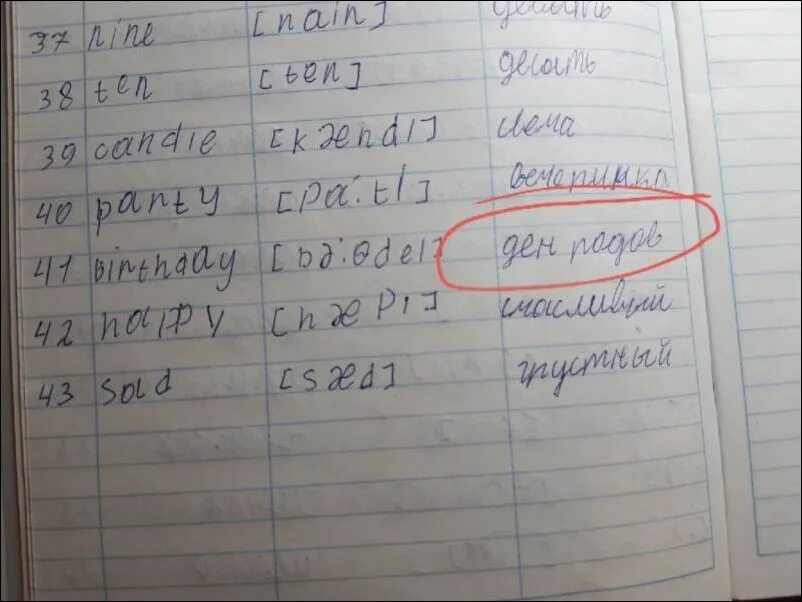 37 nine [nain]
38 ten [ten] десять
39 candle [kændl] свеча
40 party [pa:tI] вечеринка
41 Birthday [bə:θdeI] ден родов
42 happy [hæpI] счасливый
43 sad [sæd] грустный